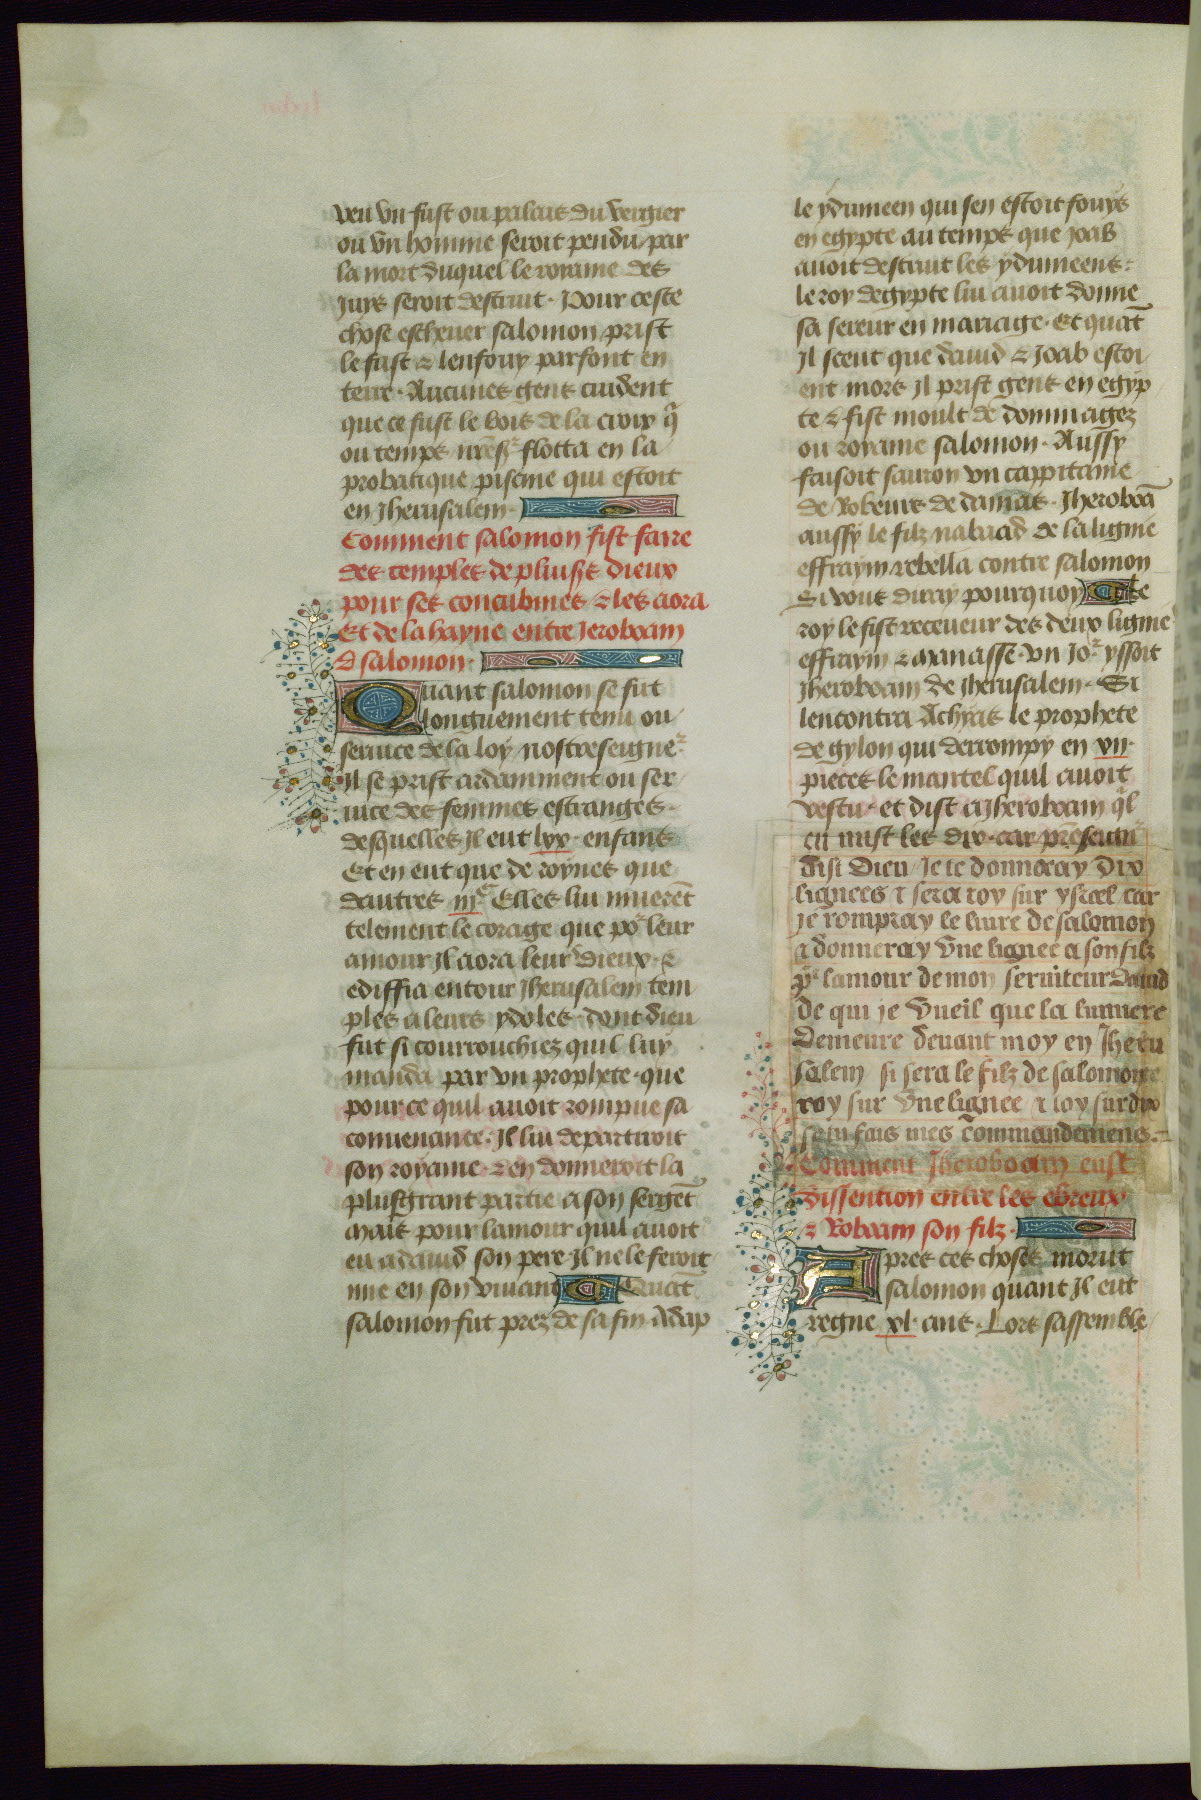 veu vn fust ou palais du vergier
ou vn homme seroit pendu par
la mort duquel le royame des
Juys seroit destruit. Pour ceste
chose eschever salomon prist
le fust & lenfouy parfont en
terre. Aucunes gens cuident
que ce fust le bois de la croix q̃
ou temps flotta en la
probatique piscine qui estoit
en Jherusalem.
Comment salomon fist faire
des temples de plius̃rs dieux
pour ses concubines & les aora
Et de la hayne entre Jeroboam
& salomon.
Quant salomon se fut
longuement tenu ou
seruice de la loy nostre seigner
Il se prist ardamment ou ser
uice des femmes estranges
desquelles Il eut lxx. enfans
Et en eut que de roynes que
dautres iijc Elles lui muerẽt
telement le corage que por leur
amour Il aora leur dieux. &
ediffia entour Jherusalem tem
ples a leurs ydoles. dont dieu
fut si courrouchiez quil luy
manda par vn prophete. que
pour ce quil auoit rompue sa
conuenance. Il lui departiroit
son royame. & en donneroit la
plusgrant partie a son sergẽt
Mais pour lamour quil auoit
eu a dauid son pere. Il ne le feroit
mie en son viuant Quãt
salomon fut prez de sa fin Adap
le ydumeen qui sen estoit fouys
en egypte au temps que Joab
auoit destruit les ydumeens:
le roy degypte lui auoit donne
sa sereur en mariage. Et quãt
Il sceut que dauid & Joab estoi
ent mors Il prist gens en egyp
te & fist moult de dommagez
ou royame salomon. Aussy
faisoit sauron vn cappitaine
de Robeurs de damas. Jheroboã
aussy le filz nabaad de la lignie
effraym rebella contre salomon
Si vous diray pourquoy Ce
roy le fist receueur des deux lignie
effraym & Manasse. vn Jor yssoit
Jheroboam de Jherusalem. Si
lencontra Achyas le prophete
de gylon qui derrompy en vii.
pieces le mantel quil auoit
vestu. et dist a Jheroboam q̃l
en mist les dix. car
dist Dieu Je te donneray dix
lignees & sera roy sur ysrael car
je rompray le liure de salomon
& donneray vne lignee a son filz
pr lamour de mon seruiteur dauid
de qui je vueil que la lumiere
Demeure deuant moy en Jheru
salem si sera le filz de salomon
roy sur vne lignee & toy sur dix
se tu fais mes cõmmandemens.
Comment Jheroboam eust
dissention entre les ebreux
& Roboam son filz.
Apres ces choses morut
salomon quant Il eut
regne xl. ans. Lors sassemble